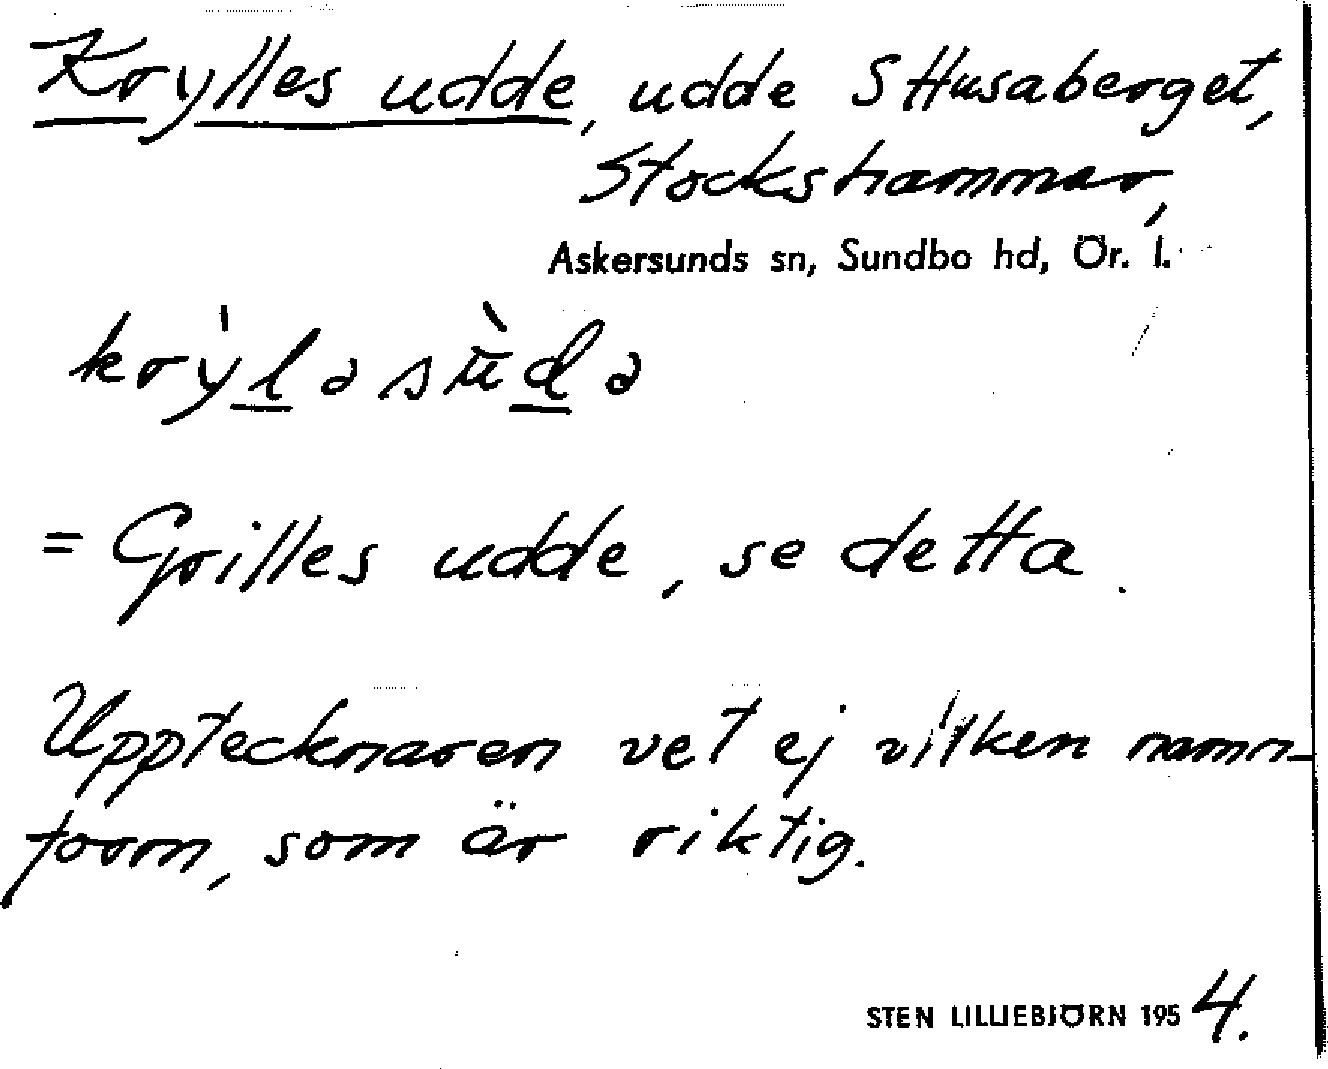 Krylles udde, udde S Husaberget,
Stockshammar,
Askersunds sn, Sundbo hd, Ör. l.
= Grilles udde, se detta.
Upptecknaren vet ej vilken namn-
form, som är riktig.
STEN LILLIEBJÖRN 1954.